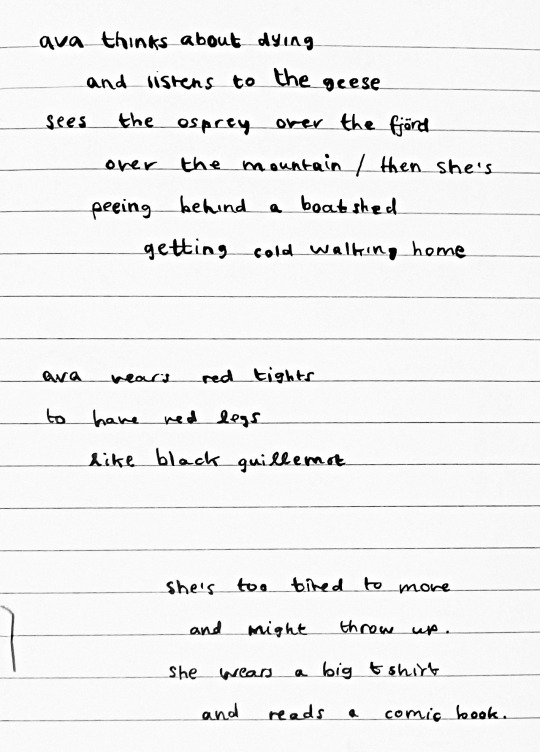 ava thinks about dying
and listens to the geese
sees the osprey over the fjörd
over the mountain / then she's
peeing behind a boatshed
getting cold walking home
ava wears red tights
to have red legs
like black guillemot
she's too tired to move
and might throw up.
she wears a big t shirt
and reads a comic book.